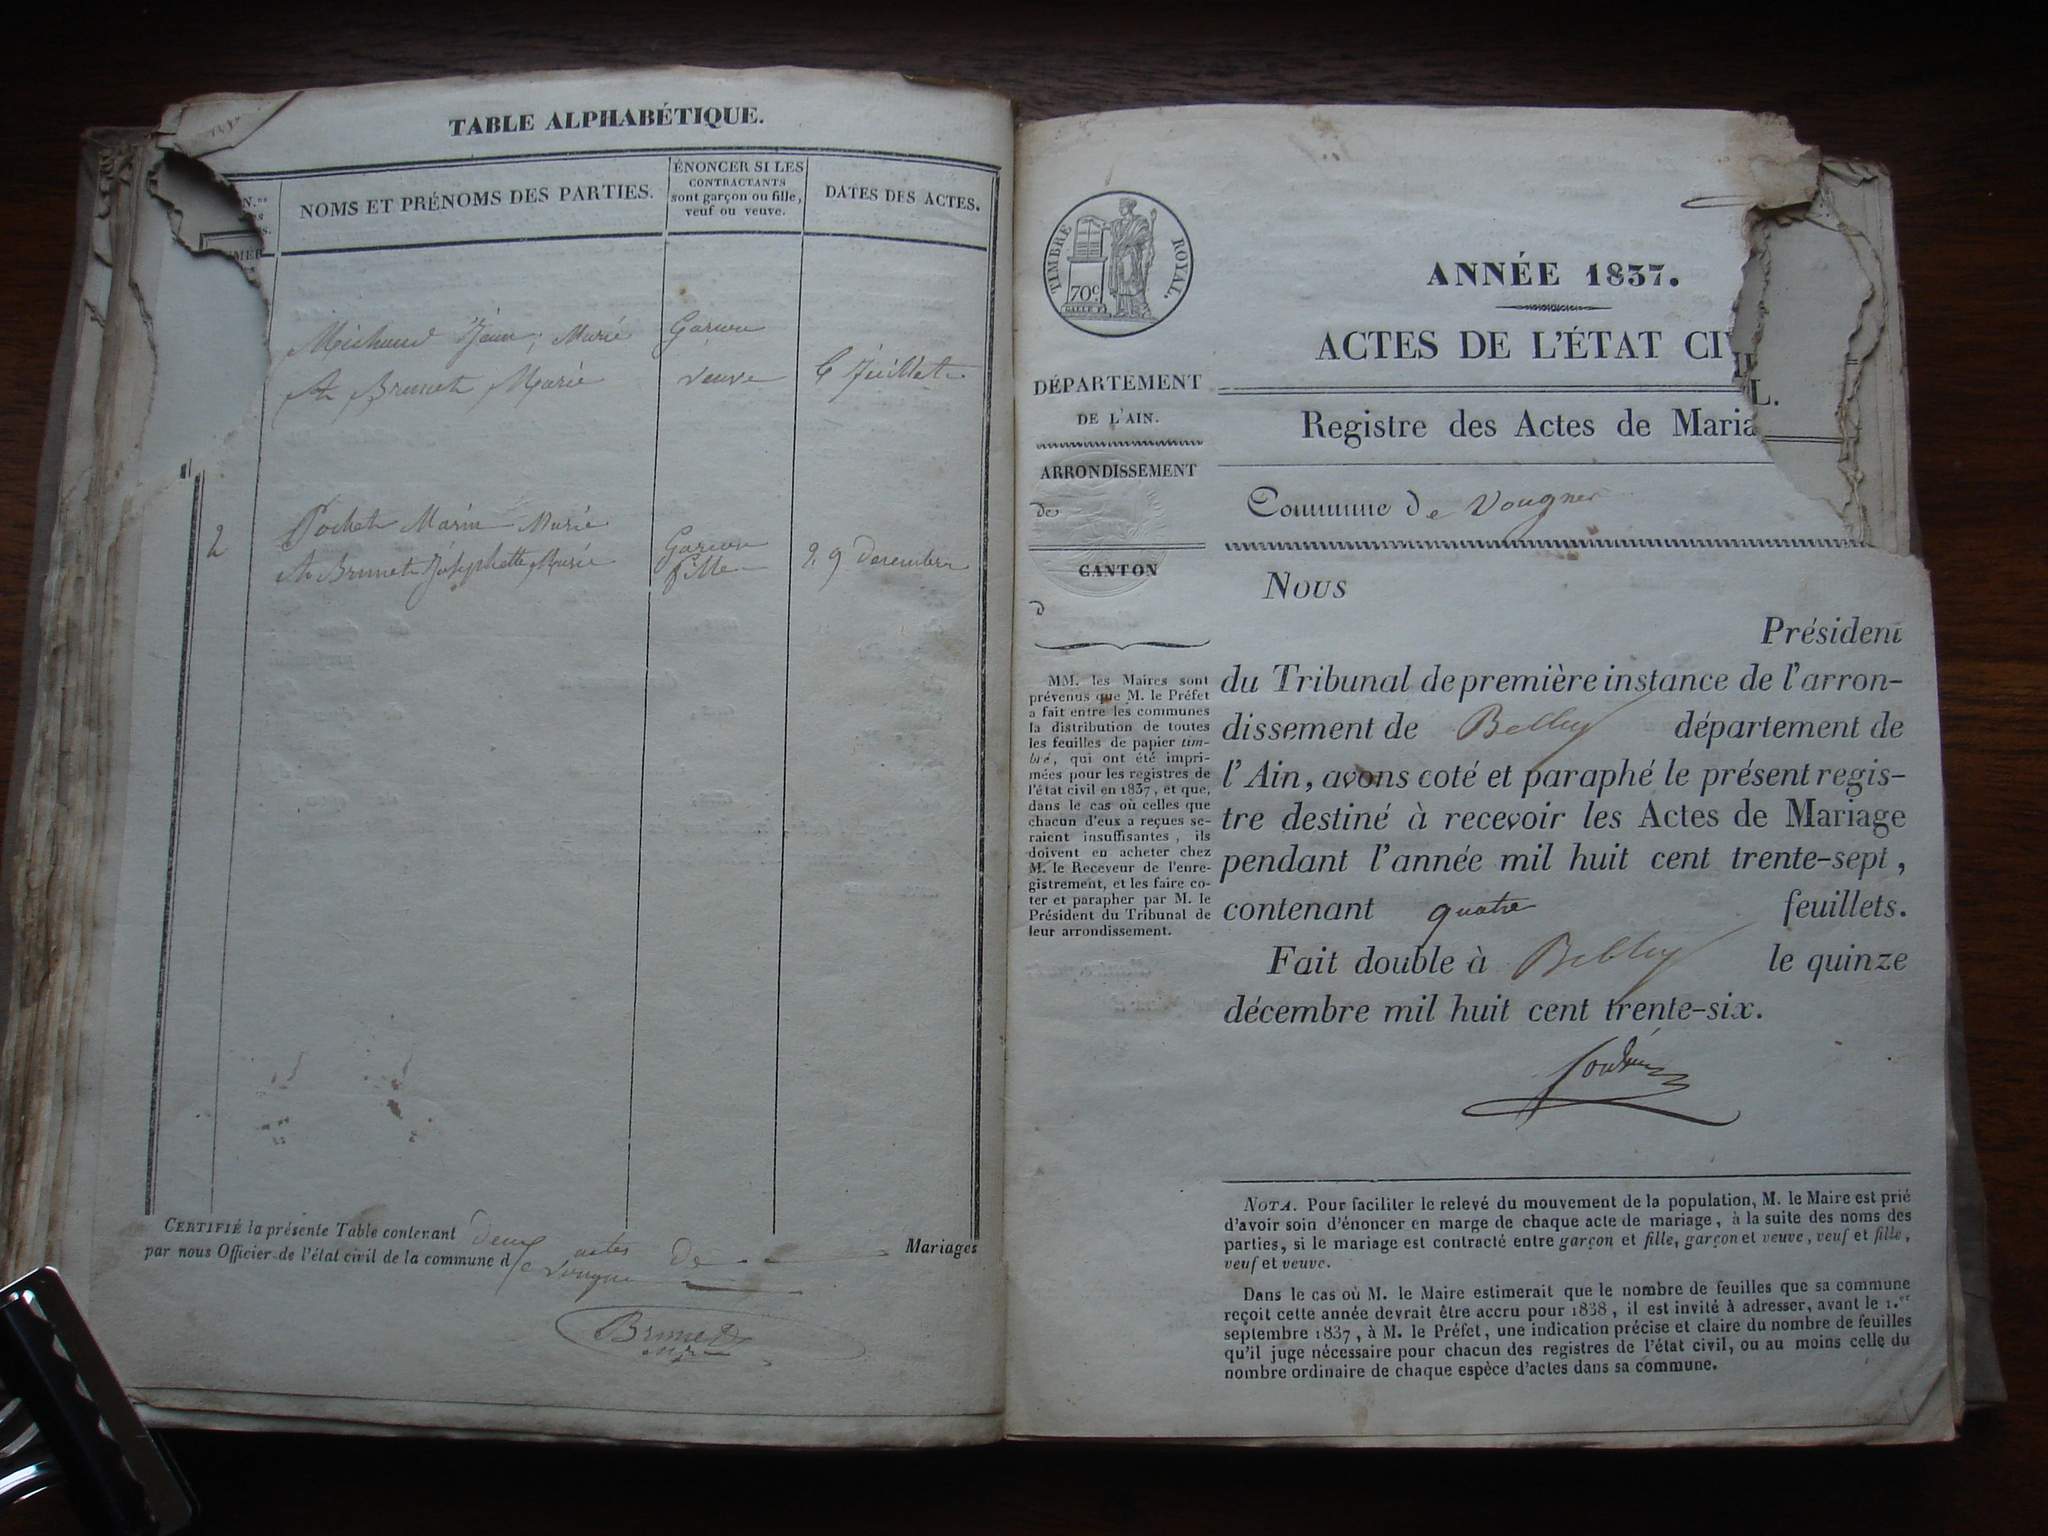 TABLE ALPHABÉTIQUE.
N.os
NOMS ET PRÉNOMS DES PARTIES.
ÉNONCER SI LES
CONTRACTANTS
sont garçon ou fille,
veuf ou veuve.
DATES DES ACTES.
Michaud Jean, Marie Garcon
Et Brunet Marie veuve 6 Juillet
2 Pochet Marin Marie Garcon
Et Brunet Joséphette Marie fille 29 Decembre
CERTIFIÉ la présente Table contenant deux actes De Mariages
par nous Officier de l'état civil de la commune de Vougne
Brunet
TIMBRE ROYAL.
70c
ANNÉE 1837.
ACTES DE L'ÉTAT CIV
L.
Registre des Actes de Maria
Commune de Vougnes
DÉPARTEMENT
DE L'AIN.
ARRONDISSEMENT
de
CANTON
d
MM. les Maires sont
prévenus que M. le Préfet
a fait entre les communes
la distribution de toutes
les feuilles de papier tim-
bré, qui ont été impri-
mées pour les registres de
l'état civil en 1837, et que,
dans le cas où celles que
chacun d'eux a reçues se-
raient insuffisantes, ils
doivent en acheter chez
M. le Receveur de l'enre-
gistrement, et les faire co-
ter et parapher par M. le
Président du Tribunal de
leur arrondissement.
NOUS
Président
du Tribunal de première instance de l'arron-
dissement de Belley département de
l'Ain, avons coté et paraphé le présent regis-
tre destiné à recevoir les Actes de Mariage
pendant l'année mil huit cent trente-sept,
contenant quatre feuillets.
Fait double à Belley le quinze
décembre mil huit cent trente-six.
NOTA. Pour faciliter le relevé du mouvement de la population, M. le Maire est prié
d'avoir soin d'énoncer en marge de chaque acte de mariage, à la suite des noms des
parties, si le mariage est contracté entre garçon et fille, garçon et veuve, veuf et fille,
veuf et veuve.
Dans le cas où M. le Maire estimerait que le nombre de feuilles que sa commune
reçoit cette année devrait être accru pour 1838, il est invité à adresser, avant le 1.er
septembre 1837, à M. le Préfet, une indication précise et claire du nombre de feuilles
qu'il juge nécessaire pour chacun des registres de l'état civil, ou au moins celle du
nombre ordinaire de chaque espèce d'actes dans sa commune.